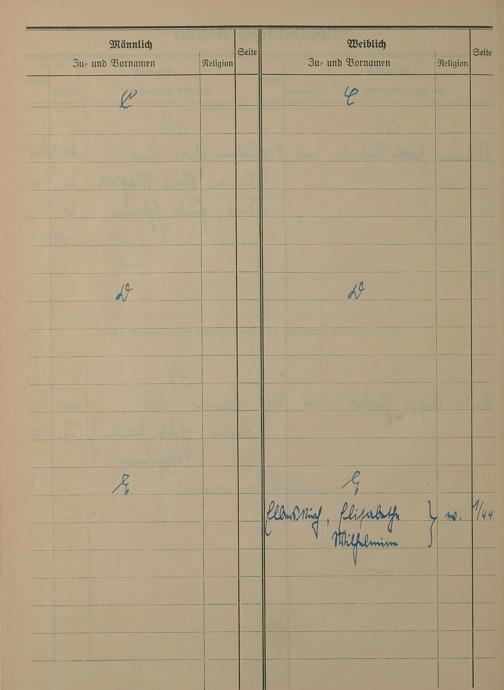 Männlich Seite Weiblich Seite
Zu- und Vornamen Religion Zu- und Vornamen Religion
C C
D D
E E
Elberskirch, Elisabethe } ev. 1/44
Wilhelmine